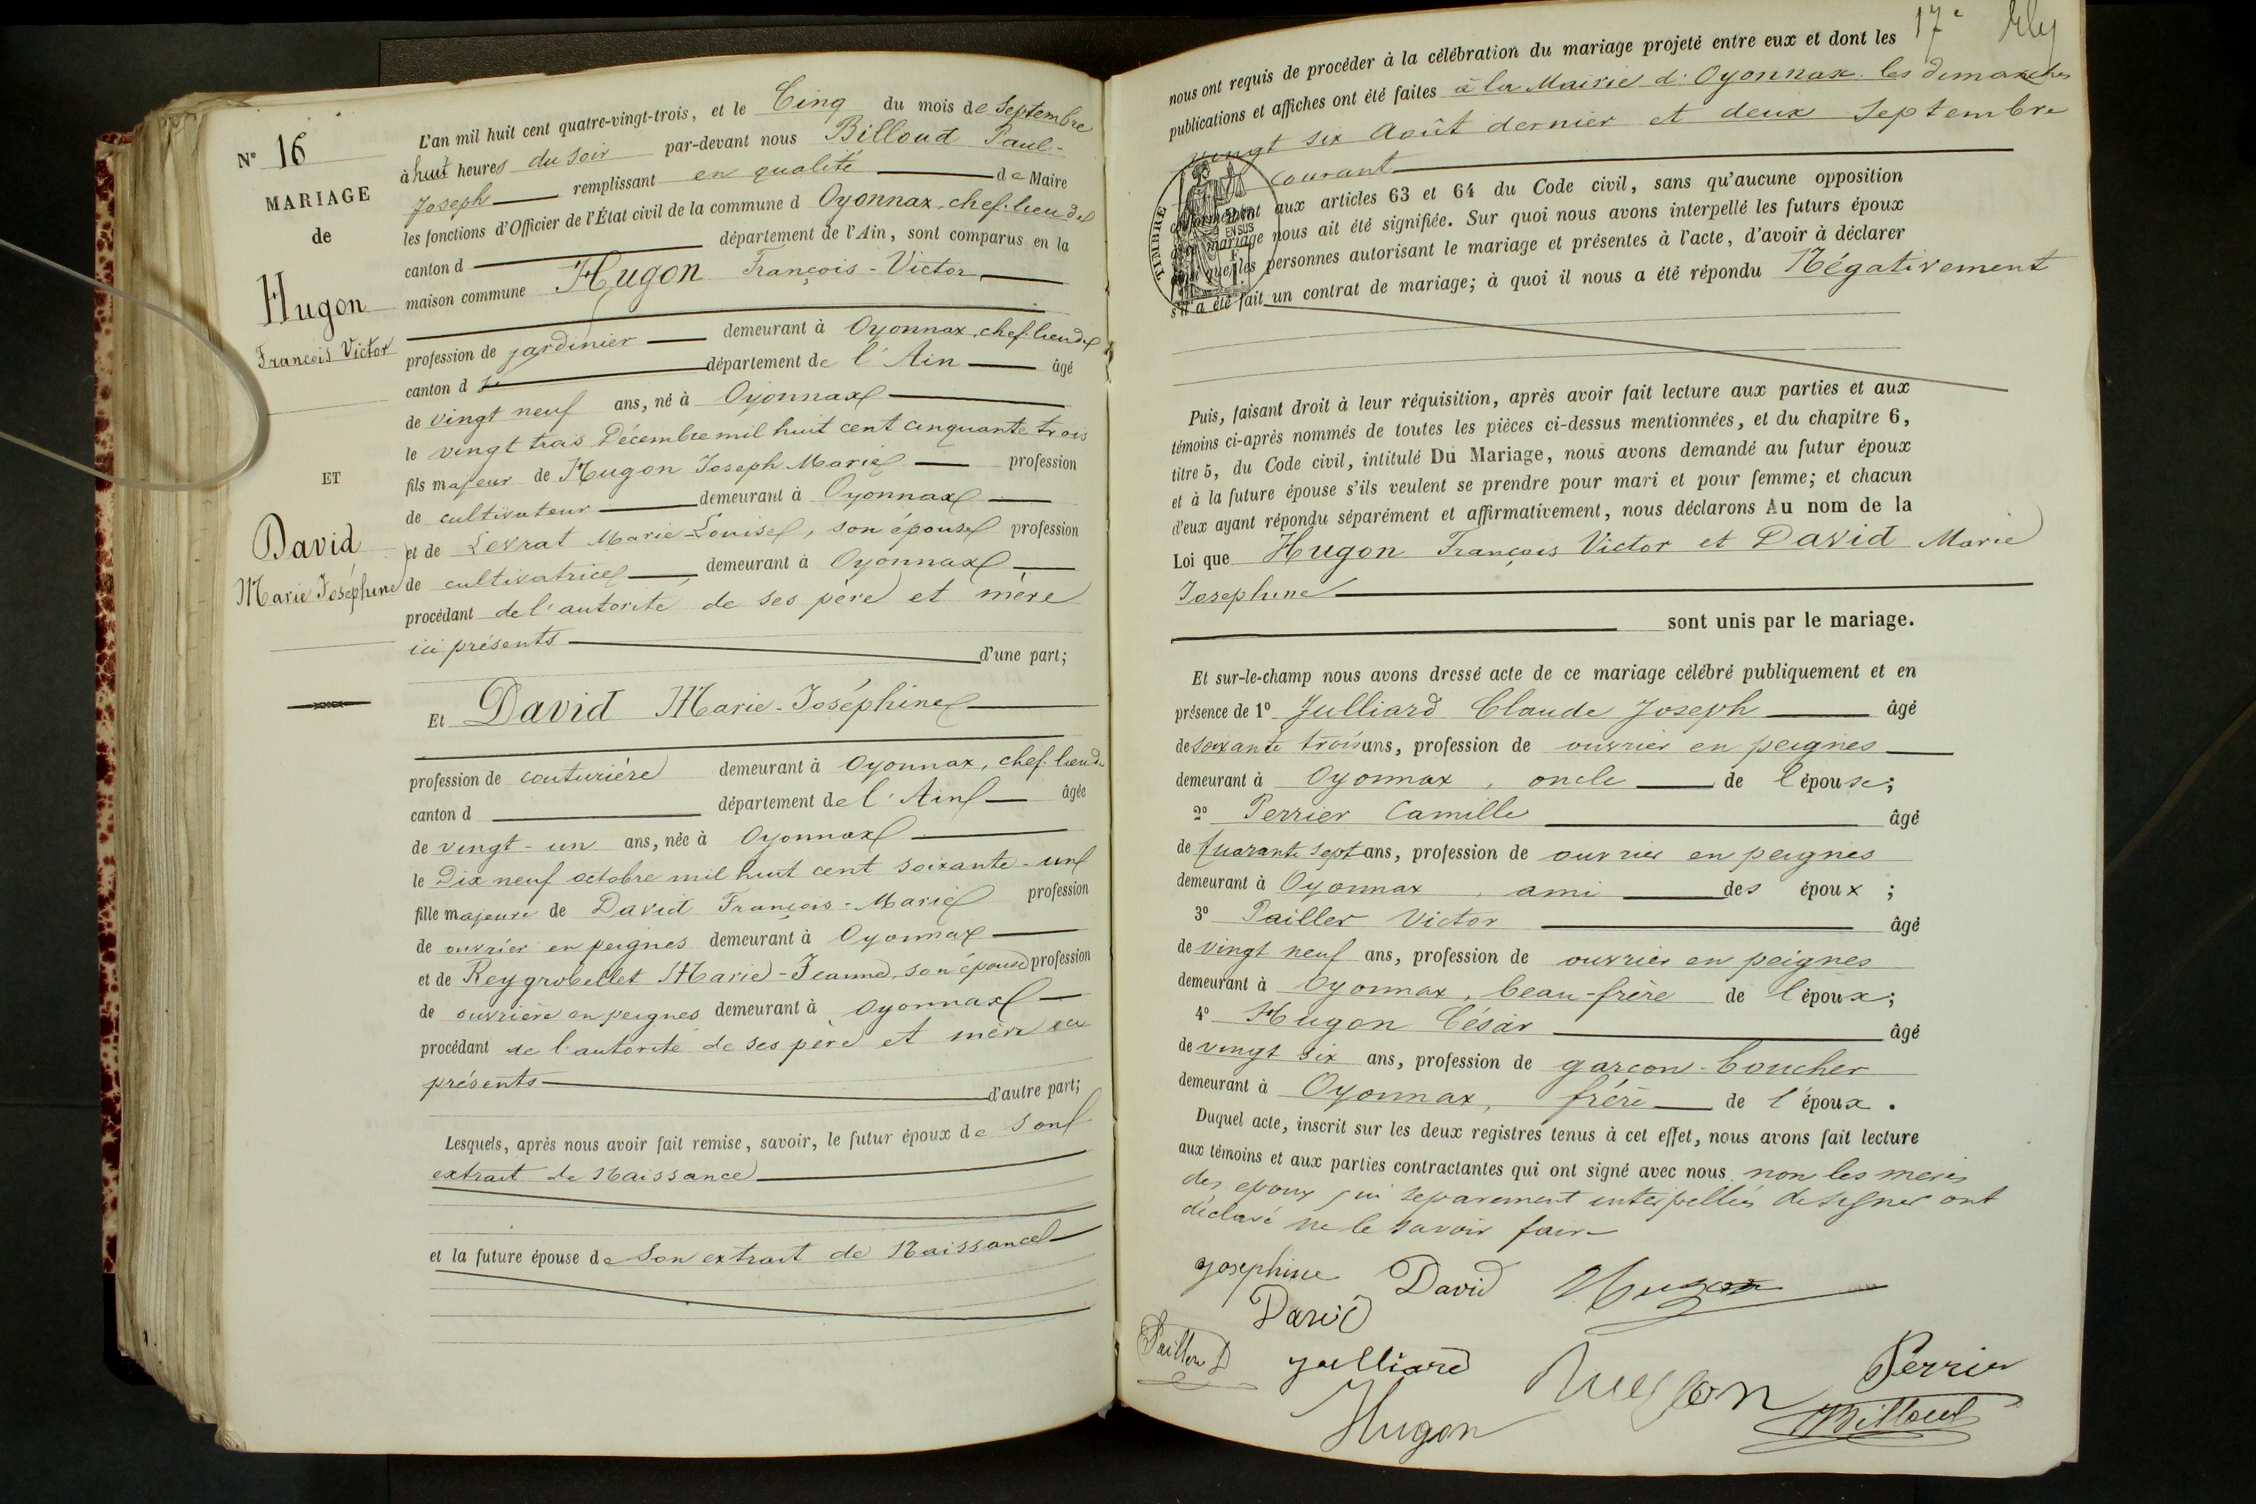 N° 16
MARIAGE
de
Hugon
François Victor
ET
David
Marie Joséphine
L'an mil huit cent quatre-vingt-trois, et le Cinq du mois de Septembre
à huit heures du soir par-devant nous Billoud Paul-
Joseph remplissant en qualité de Maire
les fonctions d'Officier de l'État civil de la commune d Oyonnax, chef-lieu de
canton d département de l'Ain, sont comparus en la
maison commune Hugon François-Victor
profession de jardinier demeurant à Oyonnax, chef-lieu de
canton d département de l'Ain âgé
de vingt neuf ans, né à Oyonnax
le vingt trois Décembre mil huit cent cinquante trois
fils majeur de Hugon Joseph Marie profession
de cultivateur demeurant à Oyonnax
et de Levrat Marie-Louise, son épouse profession
de cultivatrice demeurant à Oyonnax
procédant de l'autorité de ses père et mère
ici présents d'une part;
Et David Marie-Joséphine
profession de couturière demeurant à Oyonnax, chef-lieu de
canton d département de l'Ain âgée
de vingt-un ans, née à Oyonnax
le Dix neuf octobre mil huit cent soixante-un
fille majeure de David François-Marie profession
de ouvrier en peignes demeurant à Oyonnax
et de Reygrobellet Marie-Jeanne, son épouse profession
de ouvrière en peignes demeurant à Oyonnax
procédant de l'autorité de ses père et mère ici
présents d'autre part;
Lesquels, après nous avoir fait remise, savoir, le futur époux de son
extrait de Naissance
et la future épouse de son extrait de Naissance
17e
nous ont requis de procéder à la célébration du mariage projeté entre eux et dont les
publications et affiches ont été faites à la Mairie d'Oyonnax les dimanches
vingt six Août dernier et deux Septembre
courant
TIMBRE
EN SUS
conformément aux articles 63 et 64 du Code civil, sans qu'aucune opposition
mariage nous ait été signifiée. Sur quoi nous avons interpellé les futurs époux
que les personnes autorisant le mariage et présentes à l'acte, d'avoir à déclarer
s'il a été fait un contrat de mariage; à quoi il nous a été répondu Négativement
Puis, faisant droit à leur réquisition, après avoir fait lecture aux parties et aux
témoins ci-après nommés de toutes les pièces ci-dessus mentionnées, et du chapitre 6,
titre 5, du Code civil, intitulé Du Mariage, nous avons demandé au futur époux
et à la future épouse s'ils veulent se prendre pour mari et pour femme; et chacun
d'eux ayant répondu séparément et affirmativement, nous déclarons Au nom de la
Loi que Hugon François Victor et David Marie
Josephine
sont unis par le mariage.
Et sur-le-champ nous avons dressé acte de ce mariage célébré publiquement et en
présence de 1° Julliard Claude Joseph âgé
de soixante trois ans, profession de ouvrier en peignes
demeurant à Oyonnax, oncle de l'épouse;
2° Perrier Camille âgé
de quarante sept ans, profession de ouvrier en peignes
demeurant à Oyonnax, ami des époux;
3° Pailler Victor âgé
de vingt neuf ans, profession de ouvrier en peignes
demeurant à Oyonnax, beau-frère de l'époux;
4° Hugon César âgé
de vingt six ans, profession de garçon-boucher
demeurant à Oyonnax, frère de l'époux.
Duquel acte, inscrit sur les deux registres tenus à cet effet, nous avons fait lecture
aux témoins et aux parties contractantes qui ont signé avec nous, non les meres
des epoux qui separement interpellées de signer ont
déclaré ne le savoir faire
Josephine David Hugon
David
Julliard Hugon Perrier
Hugon Billoud